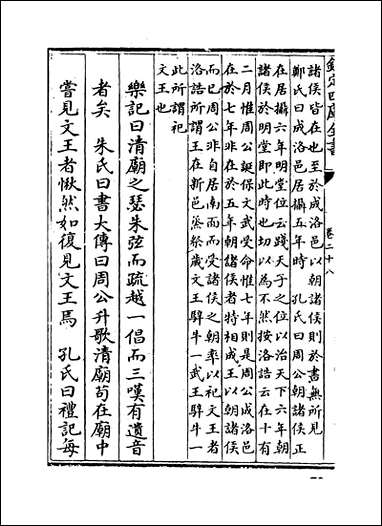 欽定四庫全書
卷二十八
諸侯皆在也至於成洛邑以朝諸侯則於書無所見
鄭氏曰成洛邑居攝五年時　孔氏曰周公朝諸侯正
在居攝六年明堂位云踐天子之位以治天下六年朝
諸侯於明堂即此時也切以為不然按洛誥云在十有
二月惟周公誕保文武受命惟七年則是周公成洛邑
在於七年非在於五年朝諸侯者特相成王以朝諸侯
而已周公非自居南面而受諸侯之朝率以祀文王者
洛誥所謂王在新邑烝祭歲文王騂牛一武王騂牛一
此所謂祀
文王也
樂記曰清廟之瑟朱弦而疏越一倡而三嘆有遺音
者矣　朱氏曰書大傳曰周公升歌清廟苟在廟中
嘗見文王者愀然如復見文王焉　孔氏曰禮記每